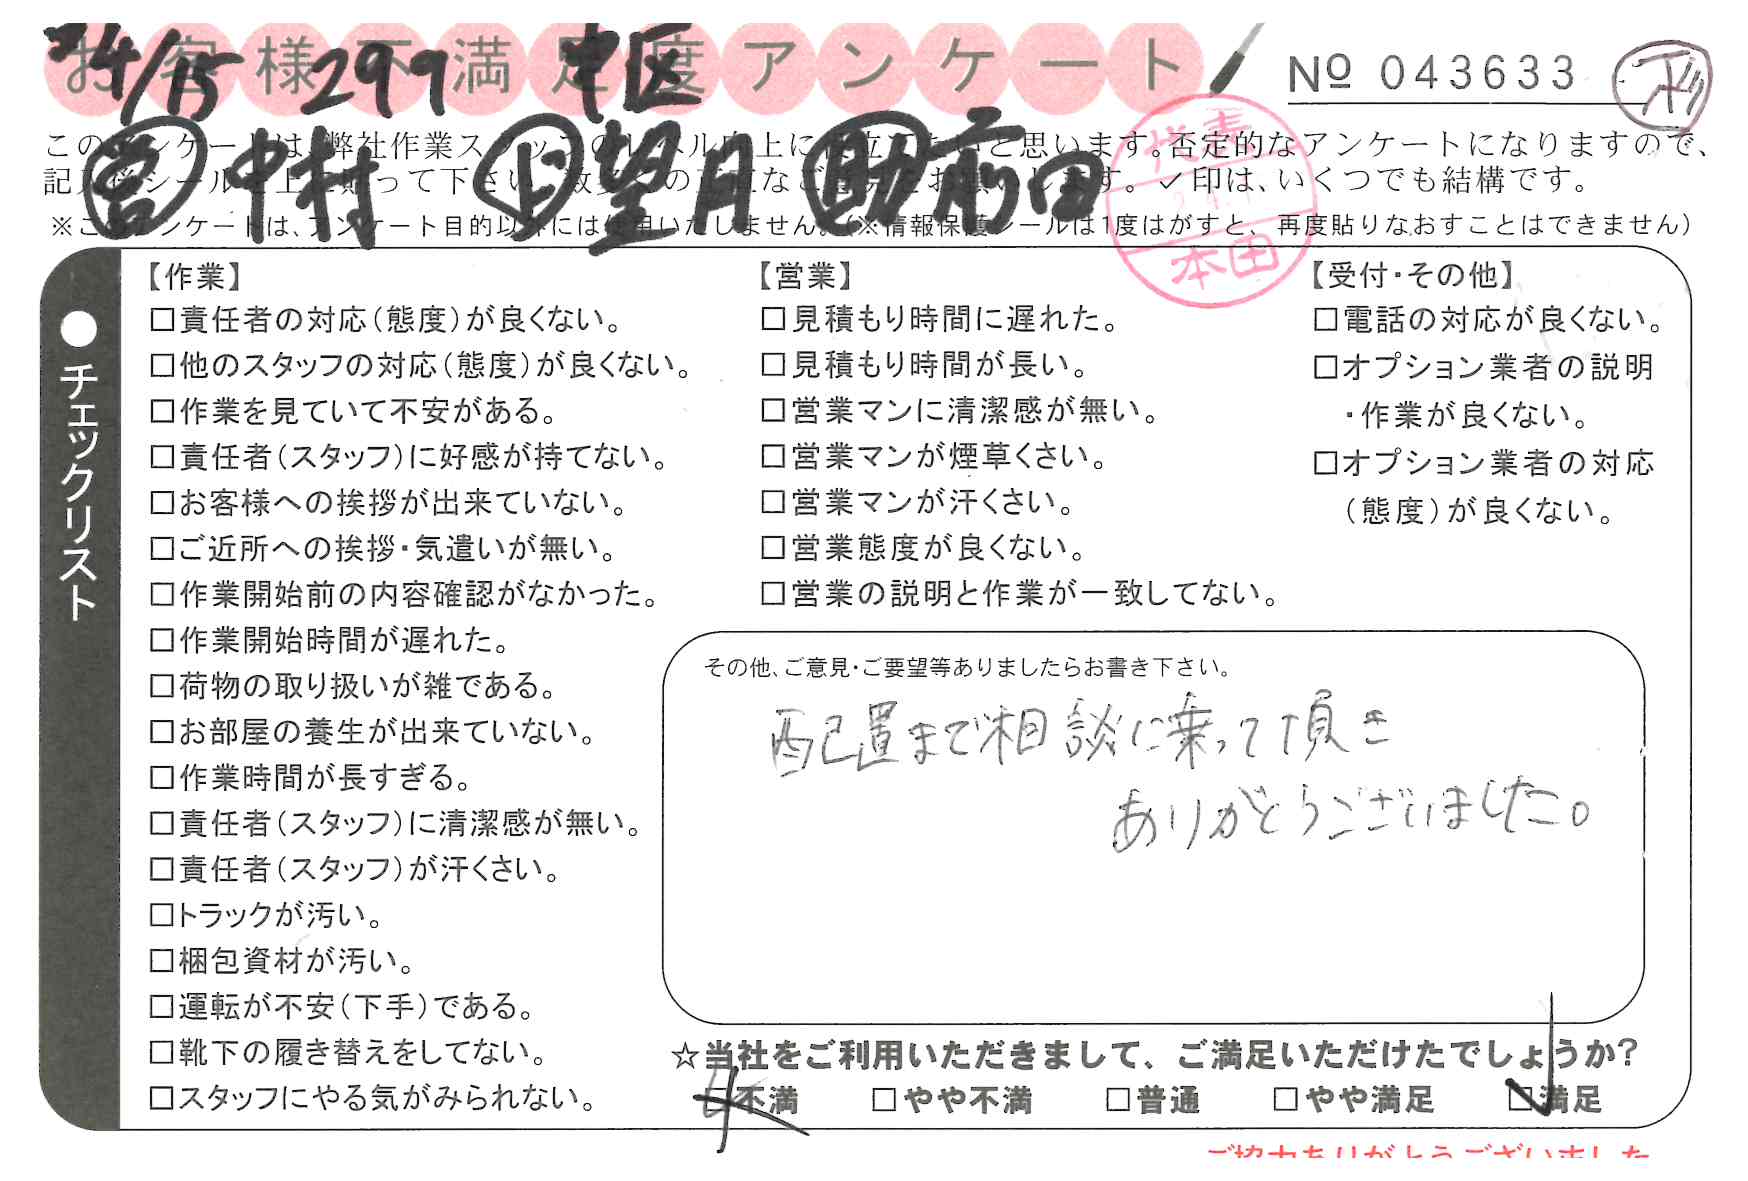 お客様不満足度アンケート
4/15 299 中区
№ 043633
このアンケートは、弊社作業スタッフのレベル向上に役立てたいと思います。否定的なアンケートになりますので、
記入後シールを上に貼って下さい。お客様の正直なご意見をお願いします。✓印は、いくつでも結構です。
※このアンケートは、アンケート目的以外には使用いたしません。(※情報保護シールは1度はがすと、再度貼りなおすことはできません)
営 中村 上 望月 助 前田
本田
●チェックリスト
【作業】
□責任者の対応(態度)が良くない。
□他のスタッフの対応(態度)が良くない。
□作業を見ていて不安がある。
□責任者(スタッフ)に好感が持てない。
□お客様への挨拶が出来ていない。
□ご近所への挨拶・気遣いが無い。
□作業開始前の内容確認がなかった。
□作業開始時間が遅れた。
□荷物の取り扱いが雑である。
□お部屋の養生が出来ていない。
□作業時間が長すぎる。
□責任者(スタッフ)に清潔感が無い。
□責任者(スタッフ)が汗くさい。
□トラックが汚い。
□梱包資材が汚い。
□運転が不安(下手)である。
□靴下の履き替えをしてない。
□スタッフにやる気がみられない。
【営業】
□見積もり時間に遅れた。
□見積もり時間が長い。
□営業マンに清潔感が無い。
□営業マンが煙草くさい。
□営業マンが汗くさい。
□営業態度が良くない。
□営業の説明と作業が一致してない。
【受付・その他】
□電話の対応が良くない。
□オプション業者の説明
・作業が良くない。
□オプション業者の対応
(態度)が良くない。
その他、ご意見・ご要望等ありましたらお書き下さい。
配置まで相談に乗って頂き
ありがとうございました。
☆当社をご利用いただきまして、ご満足いただけたでしょうか?
□不満 □やや不満 □普通 □やや満足 ☑満足
ご協力ありがとうございました